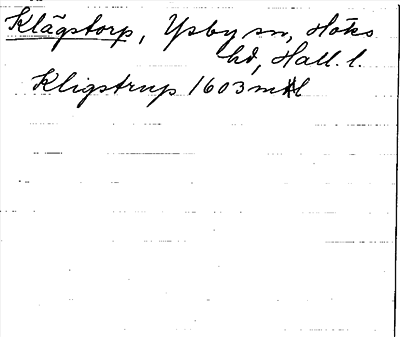 Klägstorp, Ysby sn, Höks
hd, Hall. l.
Kligstrup 1603 mtl